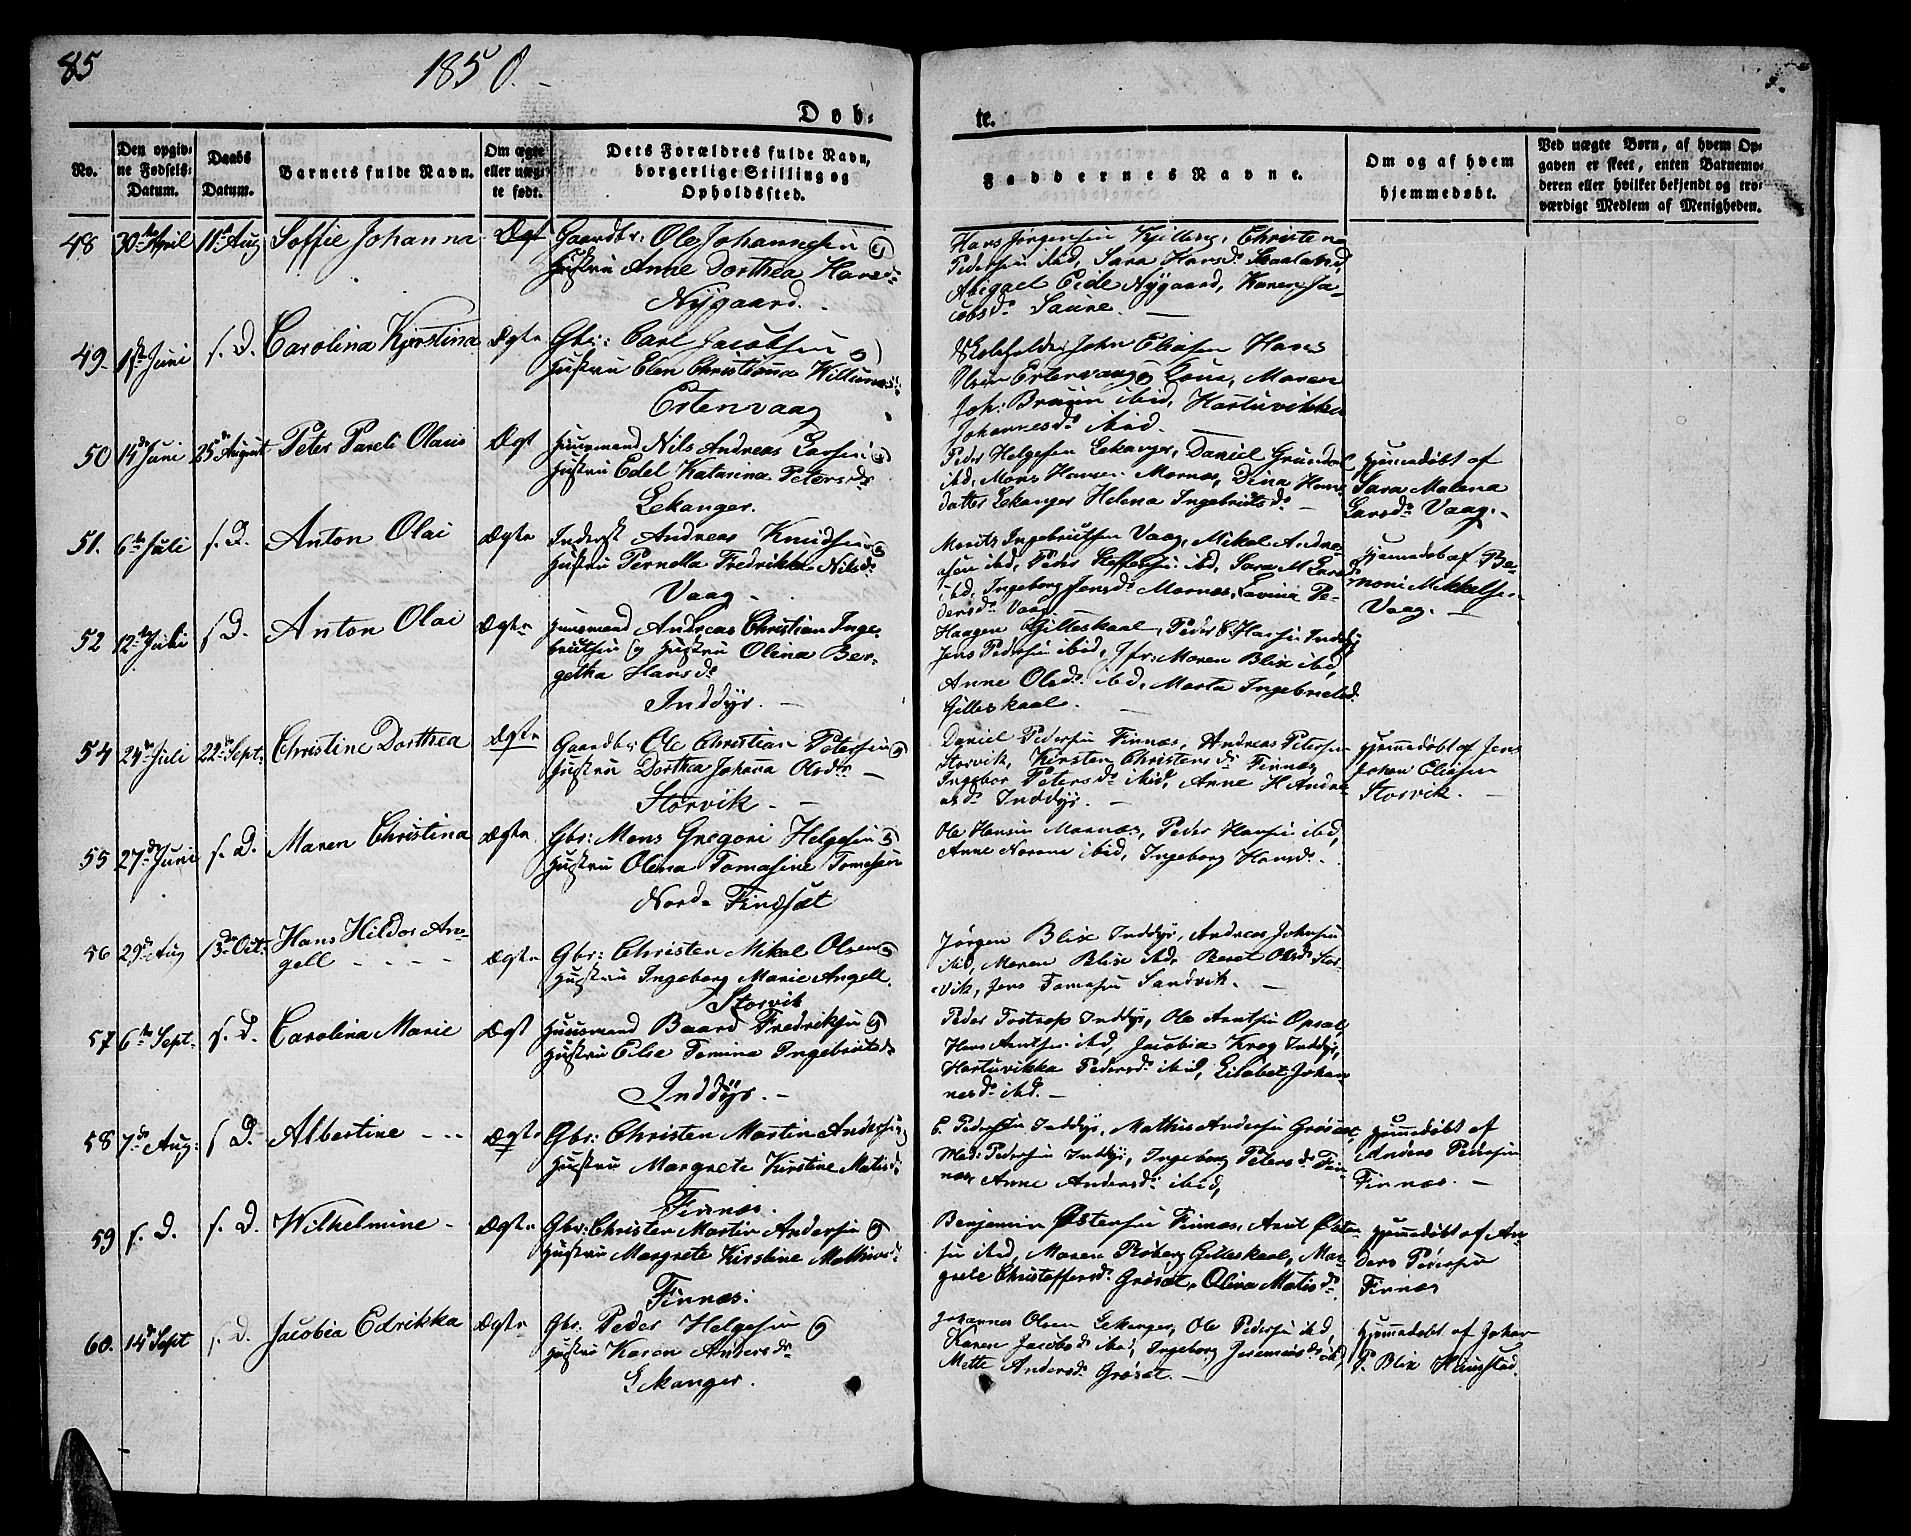 85
1850.
Døb-
te.
No.
Den opgiv-
ne Fødsels-
Datum.
Daabs
Datum.
Barnets fulde Navn.
Om ægte
eller uæg-
te født.
Dets Forældres fulde Navn,
borgerlige Stilling og
Opholdssted.
Faddernes Navne.
Om og af hvem
hjemmedøbt.
Ved uægte Børn, af hvem Op-
gaven er skeet, enten Barnemo-
deren eller hvilket bekjendt og tro-
værdigt Medlem af Menigheden.
48 30te April 11te Aug Soffie Johanna Ægt Gaardbr: Ole Johannesen og
Hustru Anne Dorthea Hansd.
Nygaard.
Hans Jørgensen Kjelling, Christen
Pedersen ibid, Sara Hansd. Skaaland,
Abigael Eide Nygaard, Karen Ja-
cobsd. Saure.
49. 1ste Juni s. D. Carolina Kjerstina Ægte Gbr: Carl Jacobsen og
Hustru Elen Christianna Willumsd.
Estenvaag
John Eliasen Hans
Olsen Estenvaag Maren
Joh: Bruun ibid, Hartvikka
Johannesd. ibid.
50 14de Juni 25de August Peter Pareli Olaus Ægt Huusmand Nils Andreas Larsen og
Hustru Edel Katarina Petersd.
Lekanger.
Peder Helgesen Lekanger, Daniel Grundal
ibd, Mons Hansen Mornæs, Dina Hans-
datter Lekanger Helena Ingebrigtsd.
Hjemmedøbt af
Sara Malena
Larsd. Vaag.
51. 6te Juli s. D. Anton Olai Ægte Inderst Andreas Knudsen og
Hustru Pernella Fredrikka Nilsd.
Vaag
Moritz Ingebrigtsen Vaag, Mikal Andrea-
sen ibd, Peder Steffensen ibd, Sara M Larsd.
ibd, Ingeborg Jensd. Mornæs, Lavina Pe-
dersd. Vaag.
Hjemmedøb af Be-
moni Mikkelsen
Vaag.
52 12te Juli s. D. Anton Olai Ægte Huusmand Andreas Christian Inge-
brigtsen og Hustru Olina Ber-
getha Hansd.
Inddyr.
Haagen Gilleskaal, Peder C. Hansen Inddyr
Jens Pedersen ibid, Jfr: Maren Blix ibid,
Anne Olsd. ibd, Marta Ingebrigtsd.
Gilleskaal.
54 24de Juli 22de Sept. Christine Dorthea Ægte Gaardbr: Ole Christian Petersen og
Hustru Dorthea Johanna Olsd.
Storvik.
Daniel Pedersen Finnæs, Andreas Petersen
Storvik, Kirsten Christensd. Finnæs
Ingebor Petersd. ibid, Anne H Andre-
asd. Inddyr.
Hjemmedøbt af Jens
Johan Eliasen
Storvik.
55 27de Juni s. D. Maren Christina Ægte Gbr: Mons Gregori Helgesen og
Hustru Olena Tomasine Tomesen
Nord- Findsæt
Ole Hansen Mornæs, Peder Hansen ibid,
Anne Norone ibid, Ingeborg Hansd.
56 29de Aug 13de Oct. Hans Hildor An-
gell Ægte Gbr: Christen Mikal Olsen og
Hustru Ingeborg Marie Angell.
Storvik
Jørgen Blix Inddyr, Andreas Johnsen
ibid, Maren Blix ibd, Beret Olsd. Stor-
vik, Jens Tomasen Sandvik.
57 6te Sept. s. D. Carolina Marie Ægt Huusmand Baard Fredriksen og
Hustru Else Tomina Ingebrigtsd.
Inddyr.
Peder Inddyr, Ole Arntsen Opsal,
Hans Arntsen ibd, Jacobia Krog Inddyr,
Hartuvikka Pedersd. ibid, Elisabet Johan-
nesd. ibd.
58 7de Aug: s. D. Albertine Ægte Gbr: Christen Martin Andersen og
Hustru Margrete Kirstine Matisd.
Finnæs.
C. Pedersen Inddyr, Mathis Andersen Grøsæt,
Mad: Pedersen Inddyr, Ingeborg Petersd. Fin-
næs, Anne Andersd. ibid,
Hjemmedøbt af
Anders Pedersen
Finnæs.
59 s. D. s. D. Wilhelmine Ægte Gbr: Christen Martin Andersen og
Hustru Margrete Kirstine Mathisd.
Finnæs.
Benjamin Østensen Finnæs, Arnt Østen-
sen ibid, Maren Roberg Gilleskaal, Mar-
grete Christoffersd. Grøsæt, Olina Matisd.
Hjemmedøbt af An-
ders Pedersen
Finnæs
60. 14de Sept s. D. Jacobia Edrikka Ægte Gbr. Peder Helgesen og
Hustru Karen Andersd.
Lekanger.
Johannes Olsen Lekanger, Ole Pedersen ibd,
Karen Jacobsd. ibid, Ingeborg Jeremiasd. ibd,
Mette Andersd. Grøsæt.
Hjemmedøbt af Johan
P. Blix Haugstad.